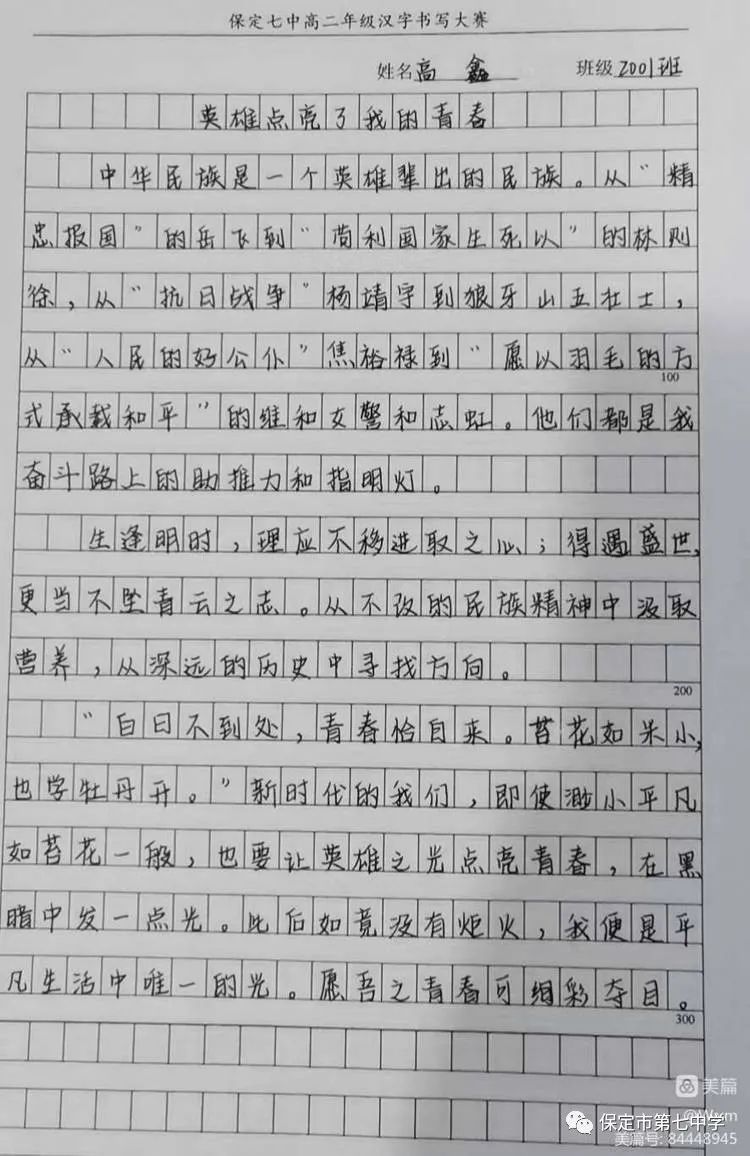 保定七中高二年级汉字书写大赛
姓名高 鑫 班级2001班
英雄点亮了我的青春
中华民族是一个英雄辈出的民族。从“精
忠报国”的岳飞到“苟利国家生死以”的林则
徐,从“抗日战争”杨靖宇到狼牙山五壮士,
从“人民的好公仆”焦裕禄到“愿以羽毛的方
100
式承载和平”的维和女警和志虹。他们都是我
奋斗路上的助推力和指明灯。
生逢明时,理应不移进取之心;得遇盛世,
更当不坠青云之志。从不改的民族精神中汲取
营养,从深远的历史中寻找方向。
200
“白日不到处,青春恰自来。苔花如米小,
也学牡丹开。”新时代的我们,即使渺小平凡
如苔花一般,也要让英雄之光点亮青春,在黑
暗中发一点光。此后如竟没有炬火,我便是平
凡生活中唯一的光。愿吾之青春可绚彩夺目。
300
美篇
@Wxm
保定市第七中学
美篇号: 84448945